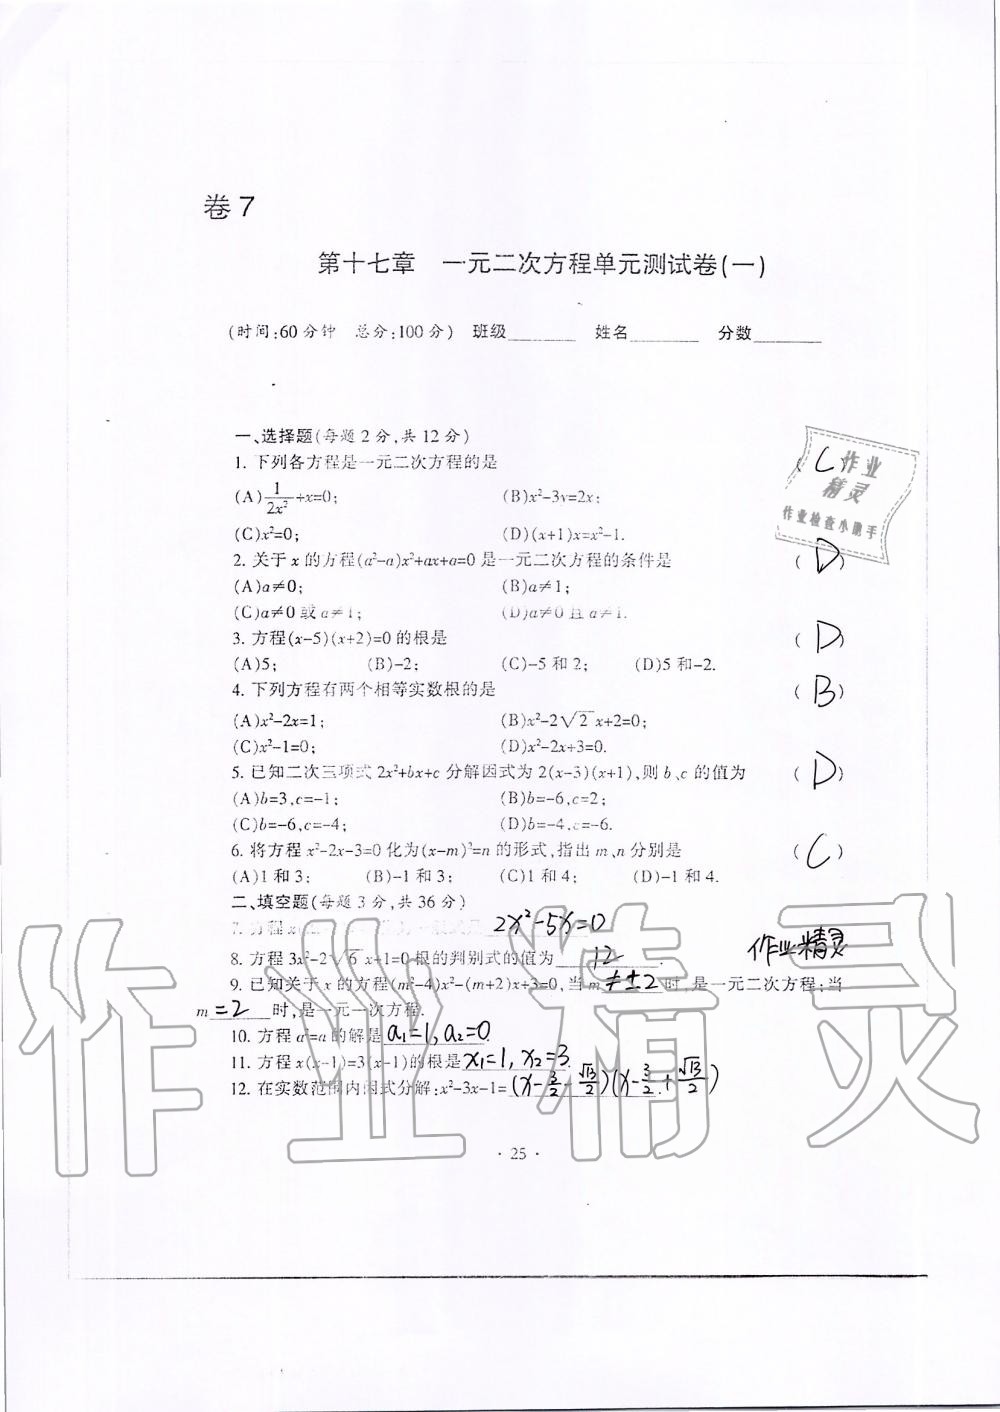 卷7
第十七章 一元二次方程单元测试卷(一)
(时间:60分钟 总分:100分) 班级______ 姓名______ 分数______
一、选择题(每题2分,共12分)
1. 下列各方程是一元二次方程的是 (C)
(A)1/2x²+x=0; (B)x²-3y=2x;
(C)x²=0; (D)(x+1)x=x²-1.
2. 关于x的方程(a²-a)x²+ax+a=0是一元二次方程的条件是 (D)
(A)a≠0; (B)a≠1;
(C)a≠0或a≠1; (D)a≠0且a≠1.
3. 方程(x-5)(x+2)=0的根是 (D)
(A)5; (B)-2; (C)-5和2; (D)5和-2.
4. 下列方程有两个相等实数根的是 (B)
(A)x²-2x=1; (B)x²-2√2x+2=0;
(C)x²-1=0; (D)x²-2x+3=0.
5. 已知二次三项式2x²+bx+c分解因式为2(x-3)(x+1),则b、c的值为 (D)
(A)b=3,c=-1; (B)b=-6,c=2;
(C)b=-6,c=-4; (D)b=-4,c=-6.
6. 将方程x²-2x-3=0化为(x-m)²=n的形式,指出m、n分别是 (C)
(A)1和3; (B)-1和3; (C)1和4; (D)-1和4.
二、填空题(每题3分,共36分)
7. 方程 2x²-5x=0
8. 方程3x²-2√6x+1=0根的判别式的值为 12 .
9. 已知关于x的方程(m²-4)x²-(m+2)x+3=0,当m ≠±2 时,是一元二次方程;当
m =2 时,是一元一次方程.
10. 方程a²=a的解是 a₁=1, a₂=0.
11. 方程x(x-1)=3(x-1)的根是 x₁=1, x₂=3.
12. 在实数范围内因式分解:x²-3x-1= (x-3/2-√13/2)(x-3/2+√13/2)
· 25 ·
作业
精灵
作业检查小助手
作业精灵
作业精灵